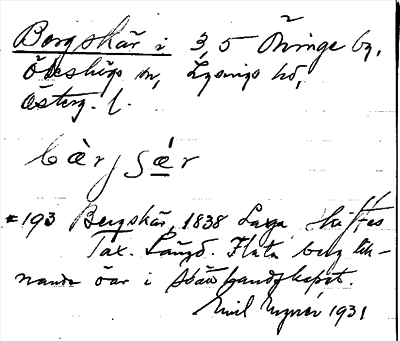 Bergskär i 3,5 Öninge by,
Ödeshögs sn, Lysings hd,
Österg. l.
bærʃǽ̱r
*193 Bergskär, 1838 Laga skiftes
Tax. Längd. Flata berg lik-
nande öar i skär
Emil 1931